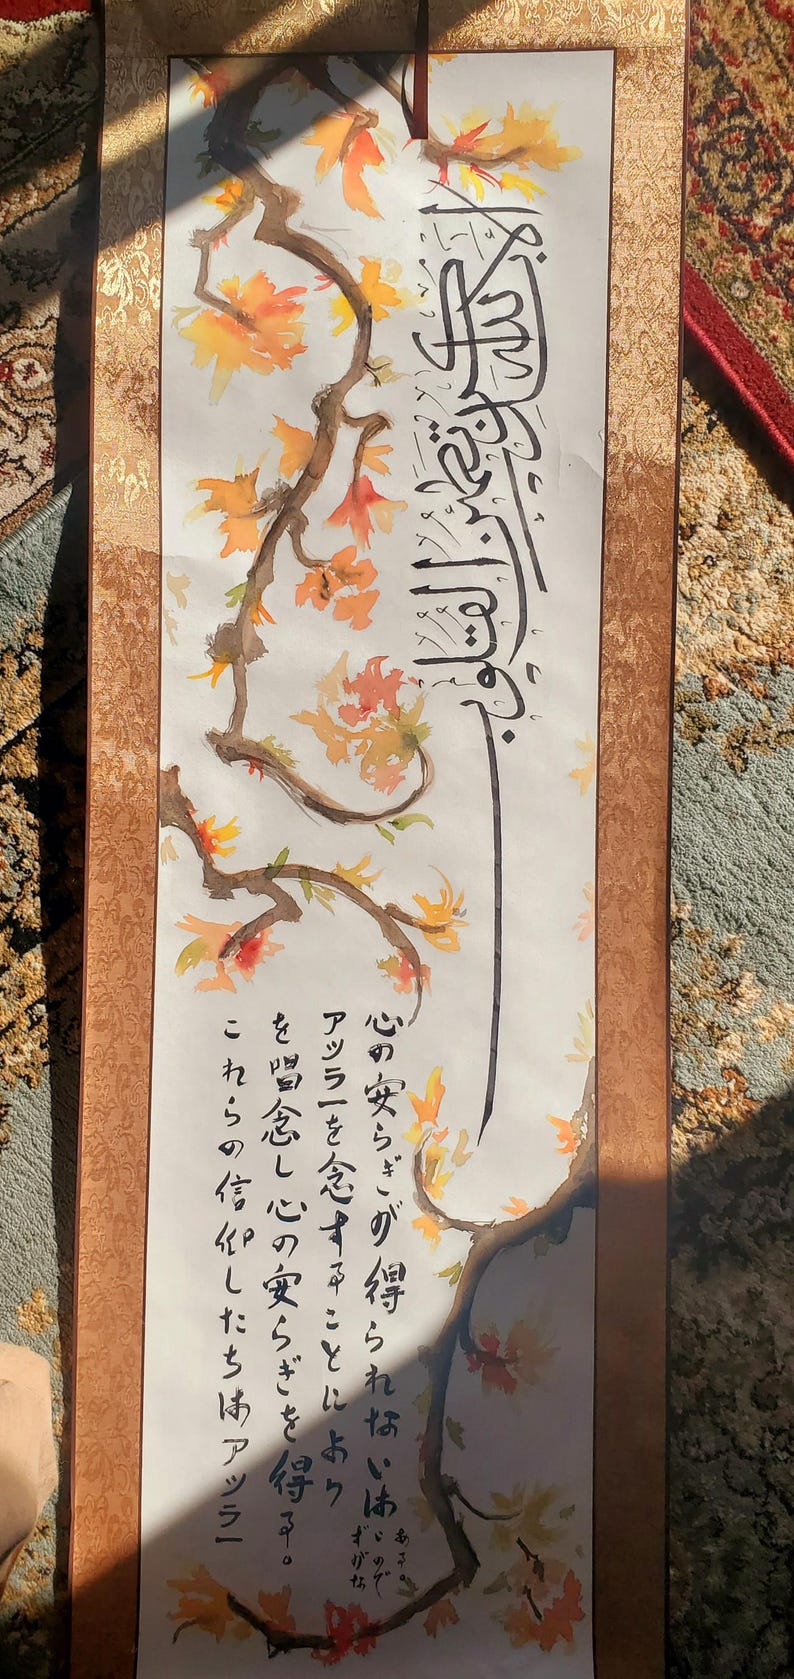 أَلَا بِذِكْرِ اللَّهِ تَطْمَئِنُّ الْقُلُوبُ
これらの信仰したちはアッラー
を唱念し心の安らぎを得る。
アッラーを念することにより
心の安らぎが得られないは
ずがな
いので
ある。